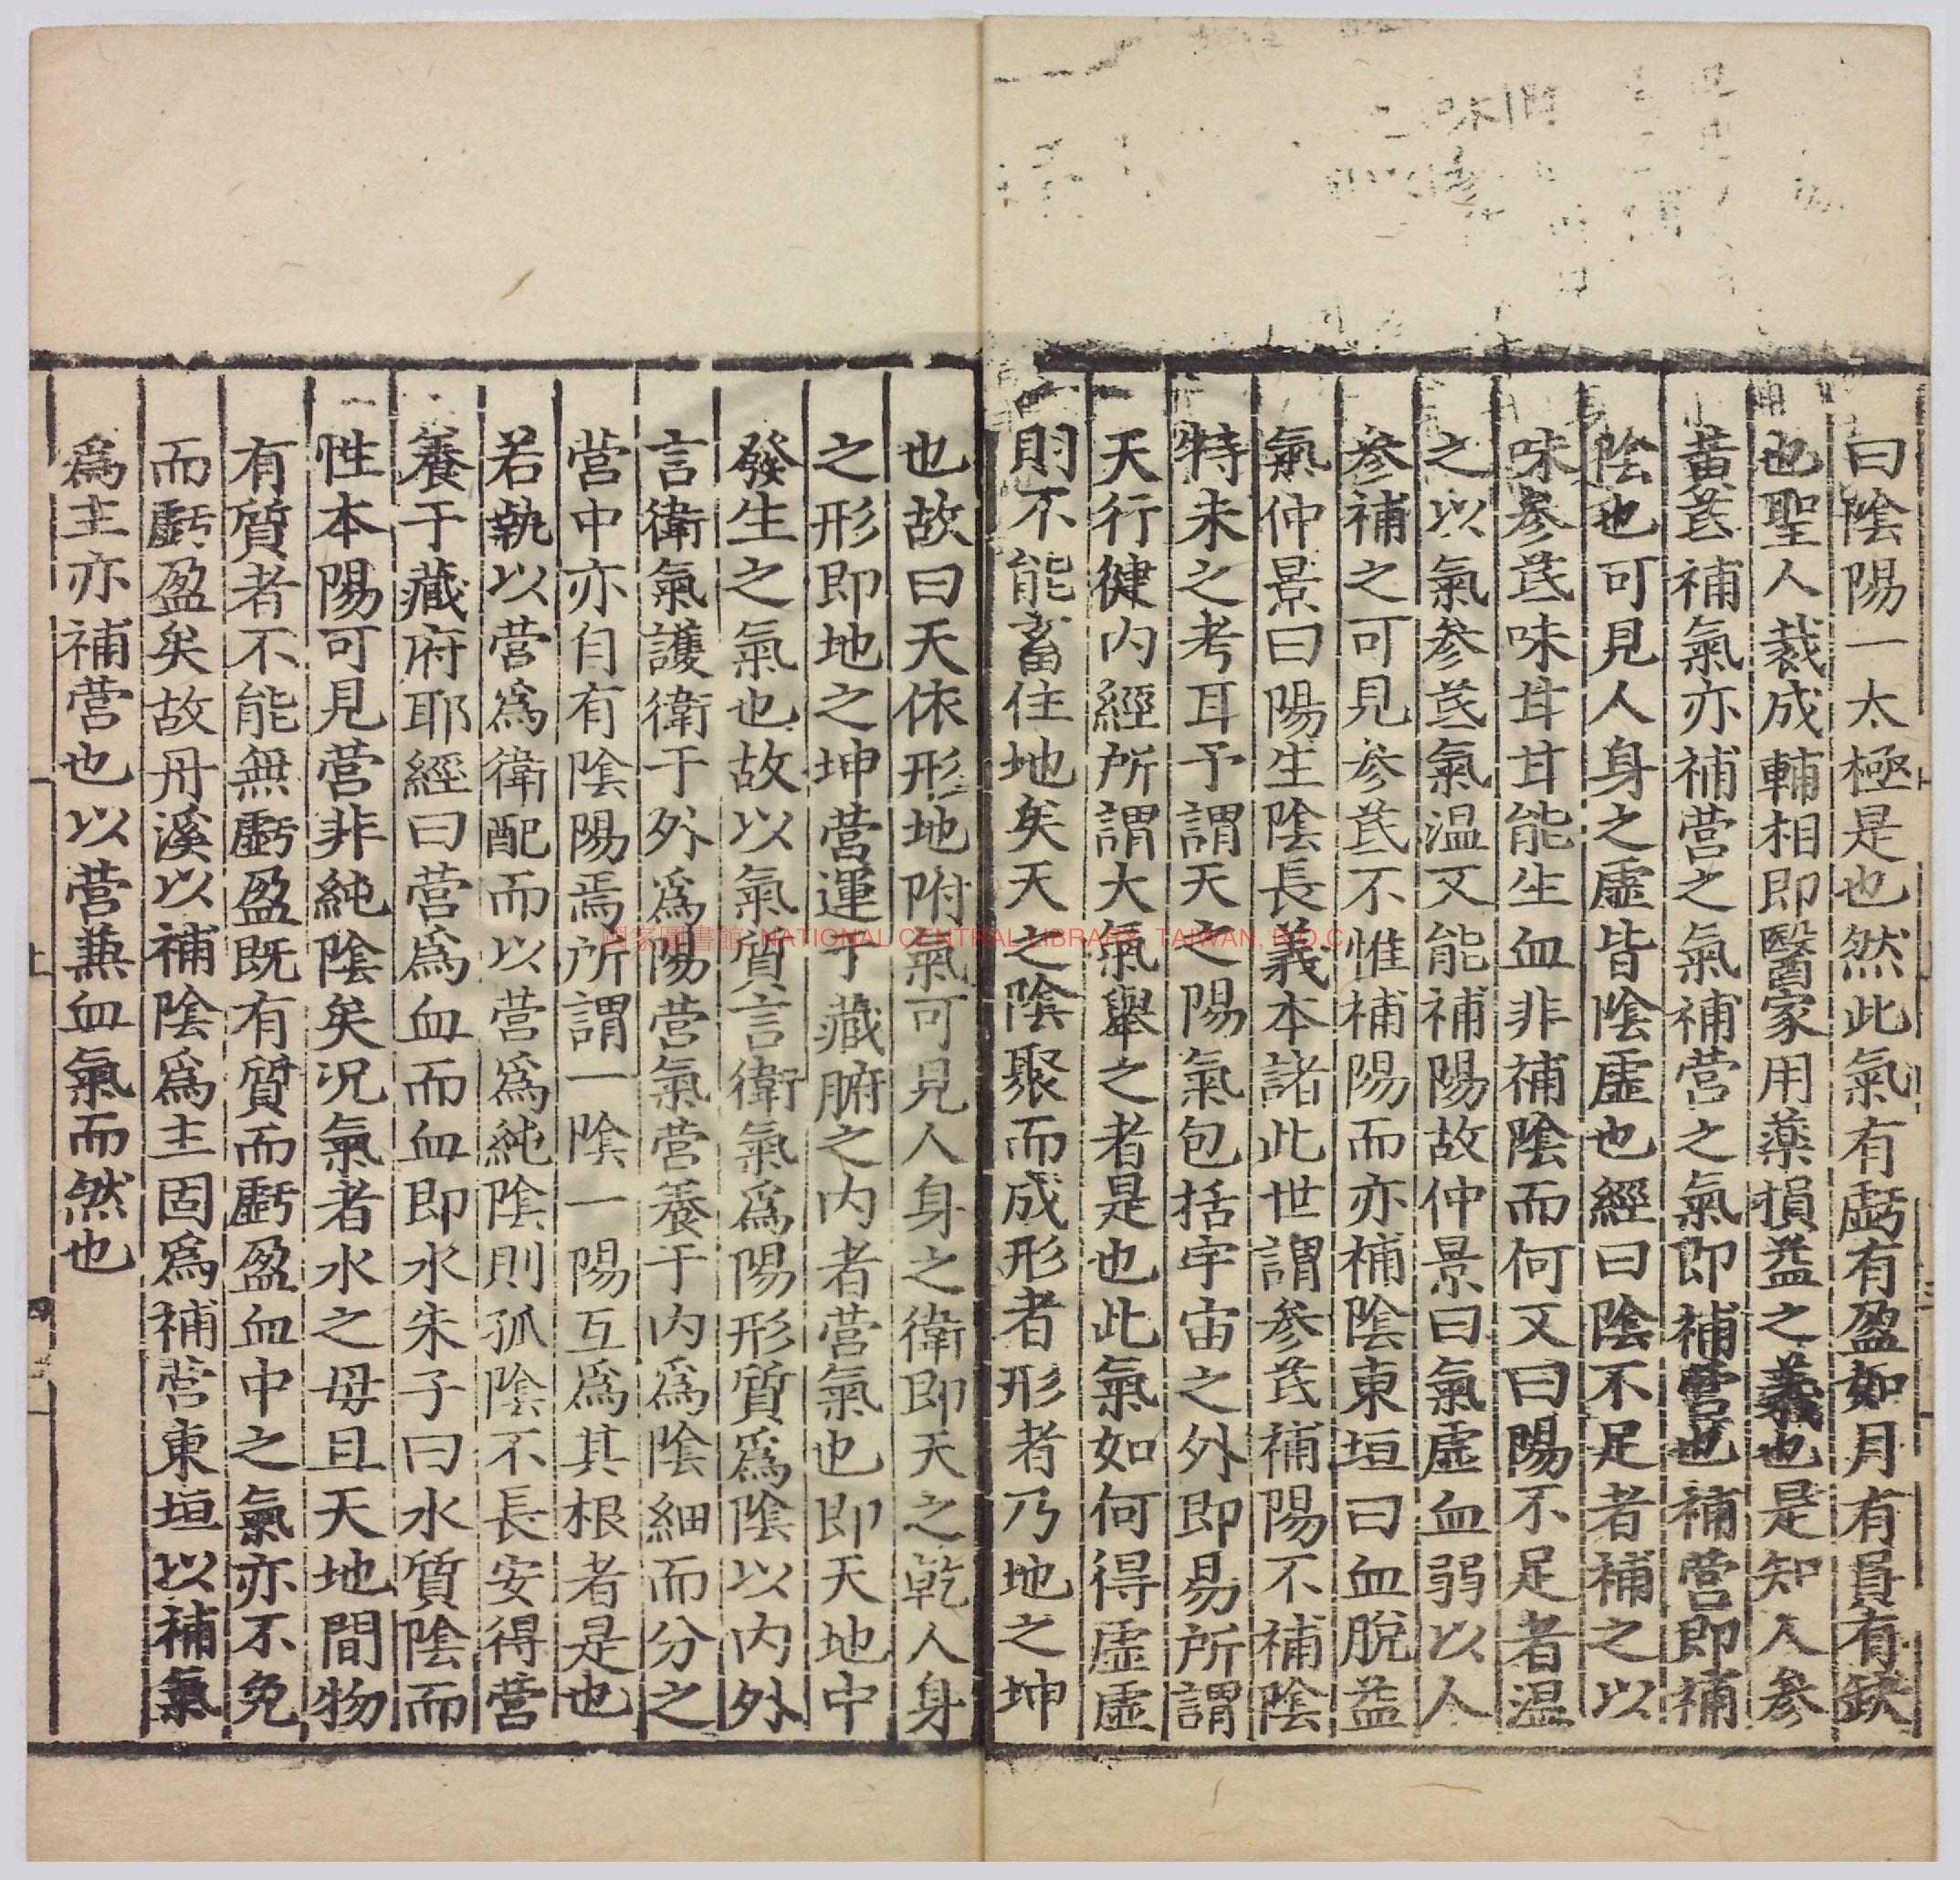 曰陰陽一太極是也然此氣有虧有盈如月有員有缺
也聖人裁成輔相即醫家用藥損益之義也是知人參
黃芪補氣亦補營之氣補營之氣即補營也補營即補
陰也可見人身之虛皆陰虛也經曰陰不足者補之以
味參芪味甘甘能生血非補陰而何又曰陽不足者温
之以氣參芪氣温又能補陽故仲景曰氣虛血弱以人
參補之可見參芪不惟補陽而亦補陰東垣曰血脫益
氣仲景曰陽生陰長義本諸此世謂參芪補陽不補陰
特未之考耳予謂天之陽氣包括宇宙之外即易所謂
天行健内經所謂大氣舉之者是也此氣如何得虛虛
則不能畜住地矣天之陰聚而成形者形者乃地之坤
也故曰天依形地附氣可見人身之衛即天之乾人身
之形即地之坤營運于藏腑之内者營氣也即天地中
發生之氣也故以氣質言衛氣為陽形質為陰以内外
言衛氣護衛于外為陽營氣營養于内為陰細而分之
營中亦自有陰陽焉所謂一陰一陽互為其根者是也
若執以營為衛配而以營為純陰則孤陰不長安得營
養于藏府耶經曰營為血而血即水朱子曰水質陰而
性本陽可見營非純陰矣况氣者水之母且天地間物
有質者不能無虧盈既有質而虧盈血中之氣亦不免
而虧盈矣故丹溪以補陰為主固為補營東垣以補氣
為主亦補營也以營兼血氣而然也
四
國家圖書館 NATIONAL CENTRAL LIBRARY, TAIWAN, R.O.C.